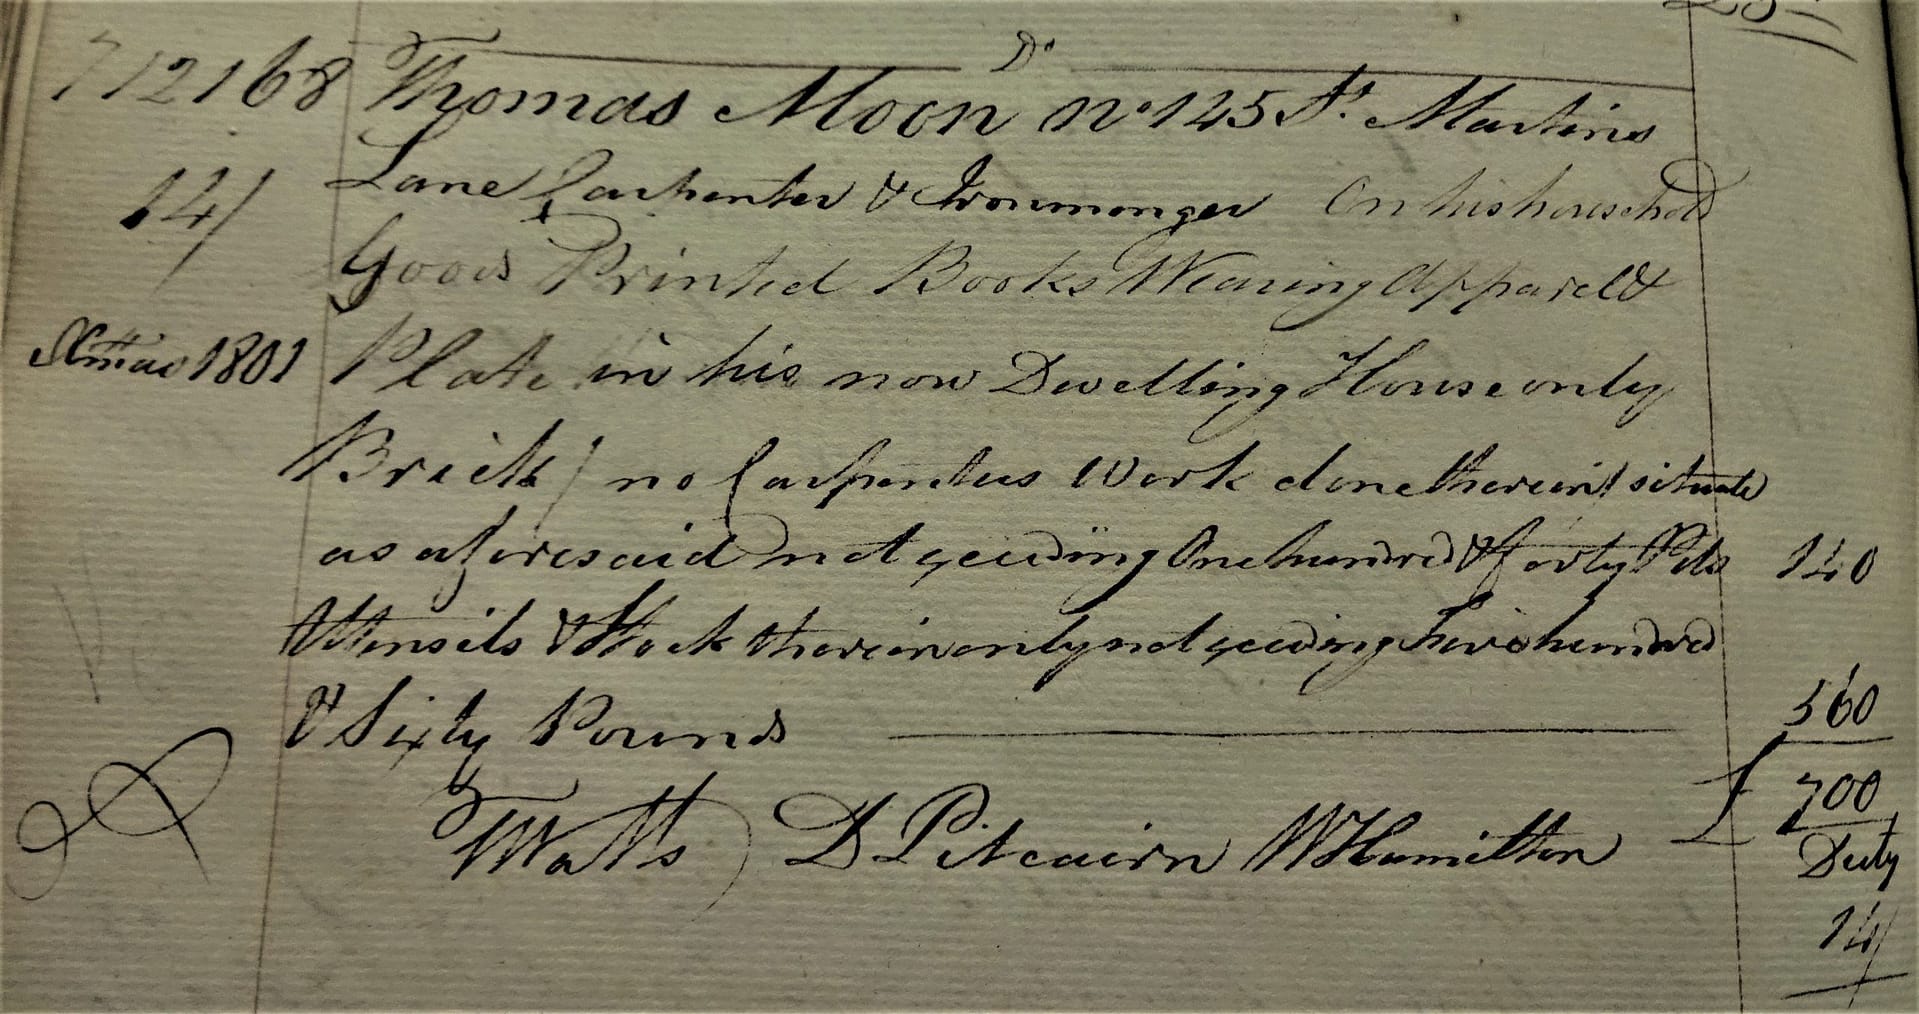 Do
712168 Thomas Moon No 125 St. Martins
14/ Lane Carpenter & Ironmonger On his household
Goods Printed Books Wearing Apparel &
Xmas 1801 Plate in his now Dwelling House only
Brick / no Carpenters Work done therein / situate
as aforesaid not xceeding One hundred & forty Pds 140
Utensils & Stock therein only not xceeding Five hundred
& Sixty Pounds 560
£ 700
Watts) D Pitcairn W Hamilton
Duty
14/